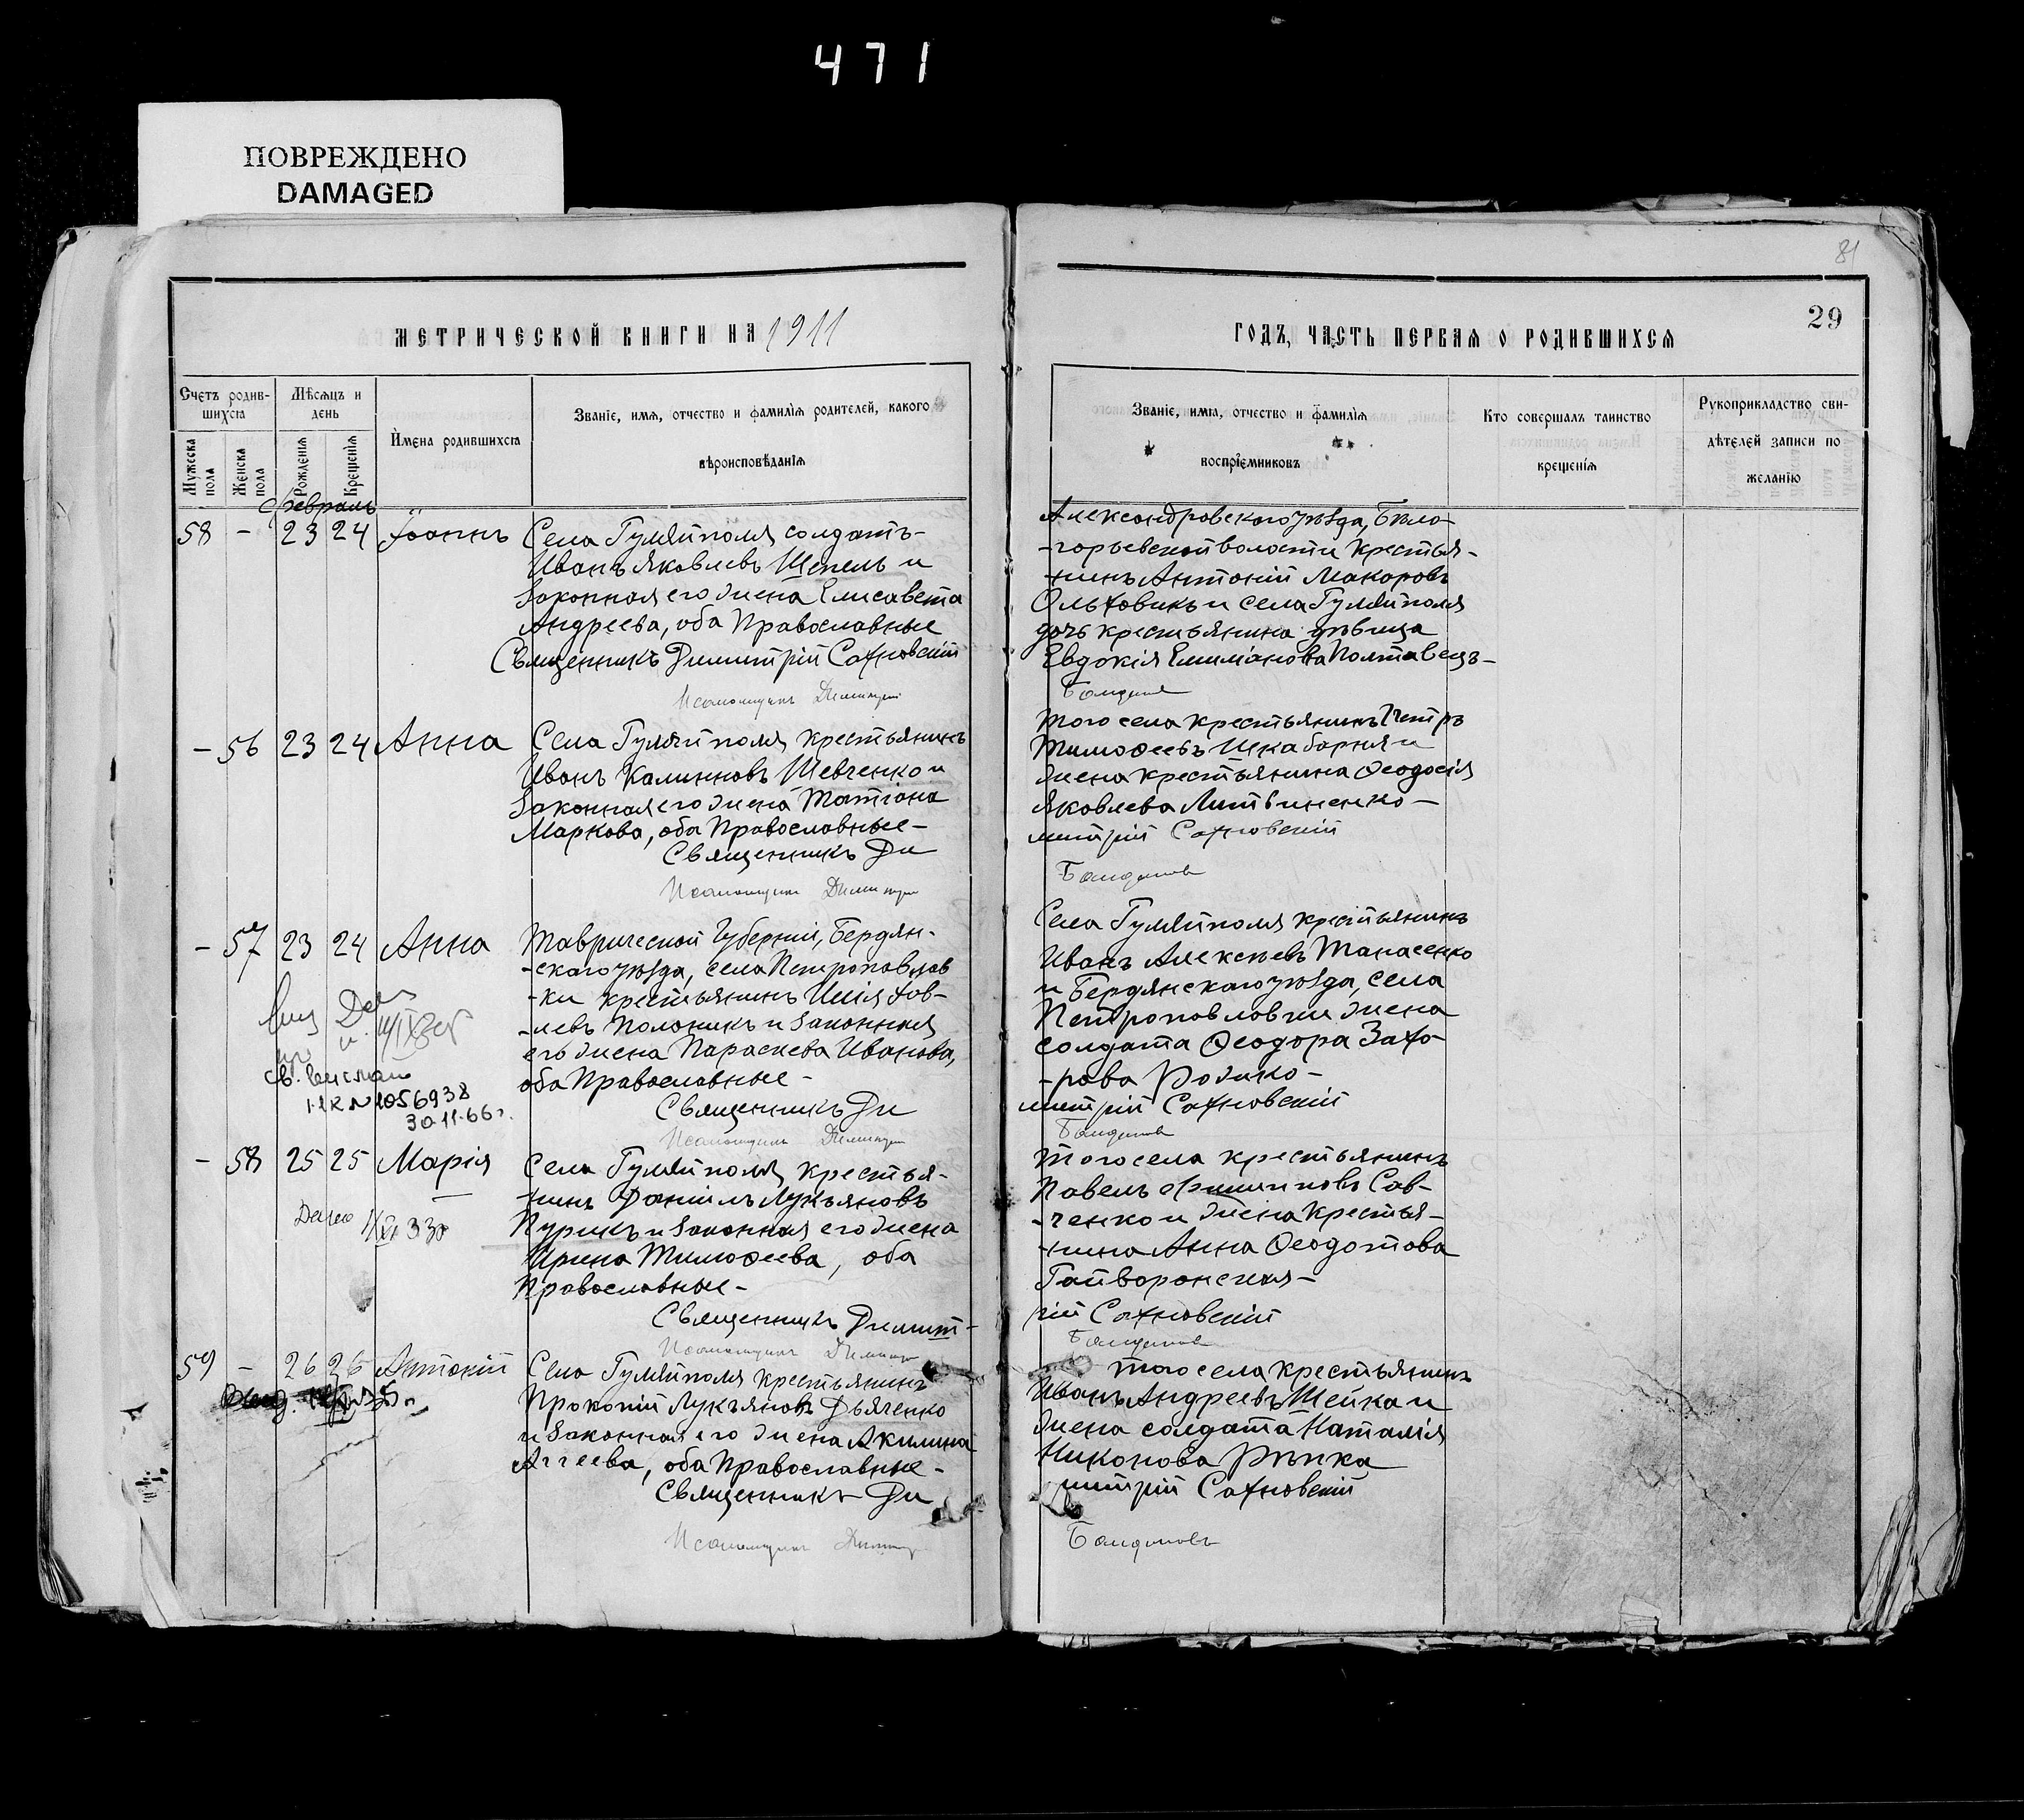 471
ПОВРЕЖДЕНО
DAMAGED
81
29
МЕТРИЧЕСКОЙ КНИГИ НА 1911
ГОДЪ, ЧАСТЬ ПЕРВАЯ О РОДИВШИХСЯ
Счетъ родив-
шихся
Мѣсяцъ и
день
Имена родившихся
Званіе, имя, отчество и фамилія родителей, какого
вѣроисповѣданія
Мужеска пола
Женска пола
Рожденія
Крещенія
Званіе, имя, отчество и фамилія
воспріемниковъ
Кто совершалъ таинство
крещенія
Рукоприкладство сви-
дѣтелей записи по
желанію
февраль
58 - 23 24 Іоаннъ
Села Гуляйполя солдатъ-
Иванъ Яковлевъ Щепель и
законная его жена Елисавета
Андреева, оба Православные
Священникъ Димитрій Сахновскій
Псаломщикъ Димитрій
Александровскаго уѣзда, Бѣло-
-горьевской волости крестья-
-нинъ Антоній Макаровъ
Ольховикъ и села Гуляйполя
дочь крестьянина дѣвица
Евдокія Емиліанова Полтавецъ-
- 56 23 24 Анна
Села Гуляйполя крестьянинъ
Иванъ Калинновъ Шевченко и
законная его жена Татіана
Маркова, оба Православные-
Священникъ Ди
Псаломщикъ Димитри
того села крестьянинъ Петръ
Тимофеевъ Шкабарня и
жена крестьянина Феодосія
Яковлева Литвиненко-
митрій Сахновскій
- 57 23 24 Анна
Таврической Губерніи, Бердян-
-скаго уѣзда, села Петропавлов
-ки крестьянинъ Илія
-левъ Полоникъ и законная
его жена Параскева Иванова,
оба Православные-
Священникъ Ди
Псаломщикъ Димитри
№ 1056938
30.11.66г.
Села Гуляйполя крестьянинъ
Иванъ Алексѣевъ Танасенко
и Бердянскаго уѣзда, села
Петропавловки жена
солдата Феодора Заха-
-рова
митрій Сахновскій
- 58 25 25 Марія
Села Гуляйполя крестья-
-нинъ Даніилъ Лукьяновъ
Пурикъ и законная его жена
Ирина Тимофеева, оба
Православные-
Священникъ Димит-
Псаломщикъ Димитри
Того села крестьянинъ
Павелъ Филипповъ Сав-
-ченко и жена крестья-
-нина Анна Феодотова
Гайворонская-
рій Сахновскій
59 - 26 26 Антоній
Села Гуляйполя крестьянинъ
Прокопій Лукьяновъ Дьяченко
и законная его жена Акилина
Аггеева, оба Православные-
Священникъ Ди
Псаломщикъ Димитр
того села крестьянинъ
Иванъ Андреевъ Шейка и
жена солдата Наталія
Никонова Рѣпка
митрій Сахновскій